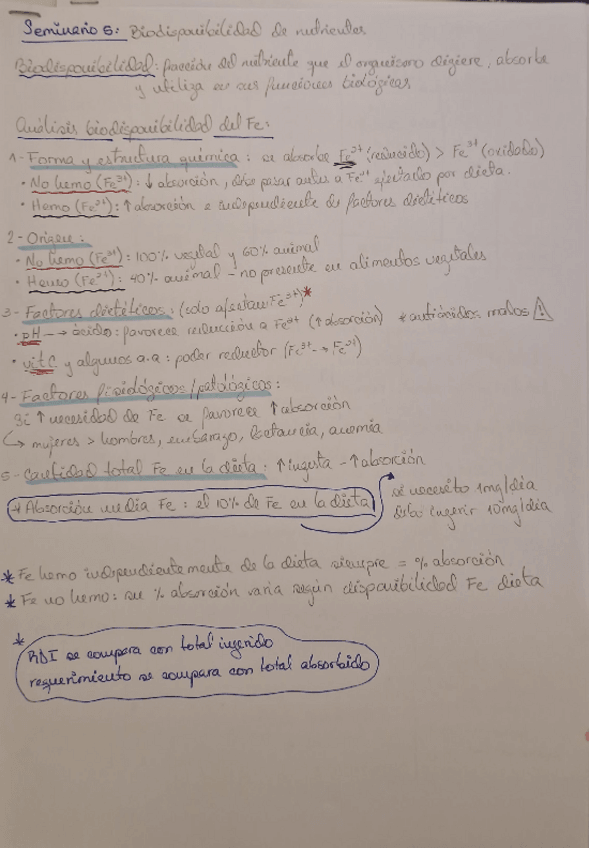 Seminario 5: Biodisponibilidad de nutrientes
Biodisponibilidad: fracción del nutriente que el organismo digiere, absorbe
y utiliza en sus funciones biológicas
Análisis biodisponibilidad del Fe:
1- Forma y estructura química: se absorbe Fe²⁺ (reducido) > Fe³⁺ (oxidado)
• No hemo (Fe³⁺): ↓ absorción, debe pasar antes a Fe²⁺ afectado por dieta.
• Hemo (Fe²⁺): ↑ absorción e independiente de factores dietéticos
2- Origen:
• No hemo (Fe³⁺): 100% vegetal y 60% animal
• Hemo (Fe²⁺): 40% animal - no presente en alimentos vegetales
3- Factores dietéticos: (solo afectan Fe³⁺)*
• pH → ácido: favorece reducción a Fe²⁺ (↑ absorción) * antiácidos malos ⚠
• vit C y algunos a.a: poder reductor (Fe³⁺ → Fe²⁺)
4- Factores fisiológicos/patológicos:
Si ↑ necesidad de Fe se favorece ↑ absorción
↳ mujeres > hombres, embarazo, lactancia, anemia
5- Cantidad total Fe en la dieta: ↑ ingesta - ↑ absorción
→ Absorción media Fe: el 10% de Fe en la dieta
si necesito 1mg/día
debo ingerir 10mg/día
* Fe hemo independientemente de la dieta siempre = % absorción
* Fe no hemo: su % absorción varia según disponibilidad Fe dieta
*
RDI se compara con total ingerido
requerimiento se compara con total absorbido